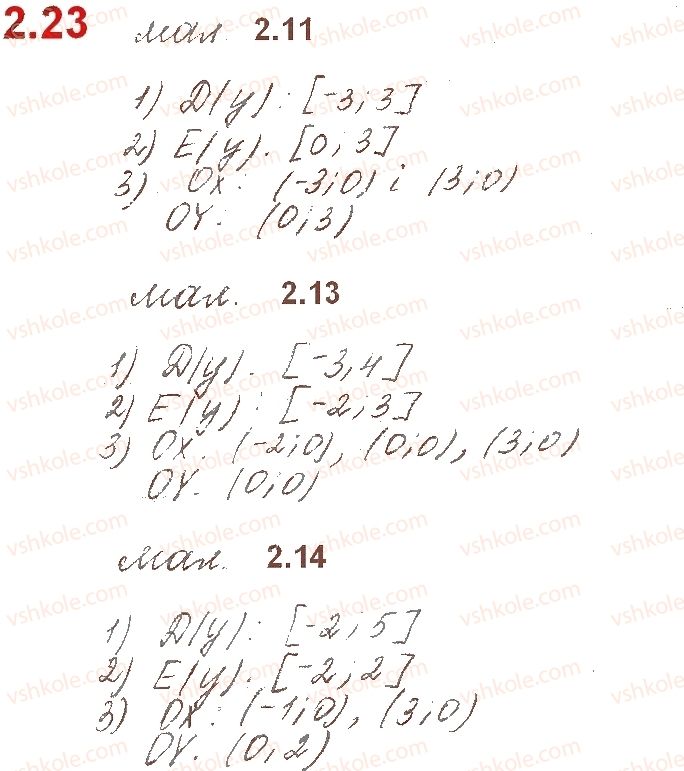 2.23 мал. 2.11
1) D(y): [-3; 3]
2) E(y). [0; 3]
3) OX: (-3; 0) і (3; 0)
OY: (0; 3)
мал. 2.13
1) D(y). [-3; 4]
2) E(y): [-2; 3]
3) OX: (-2; 0), (0; 0), (3; 0)
OY. (0; 0)
мал. 2.14
1) D(y): [-2; 5]
2) E(y). [-2; 2]
3) OX: (-1; 0), (3; 0)
OY. (0; 2)
vshkole.com